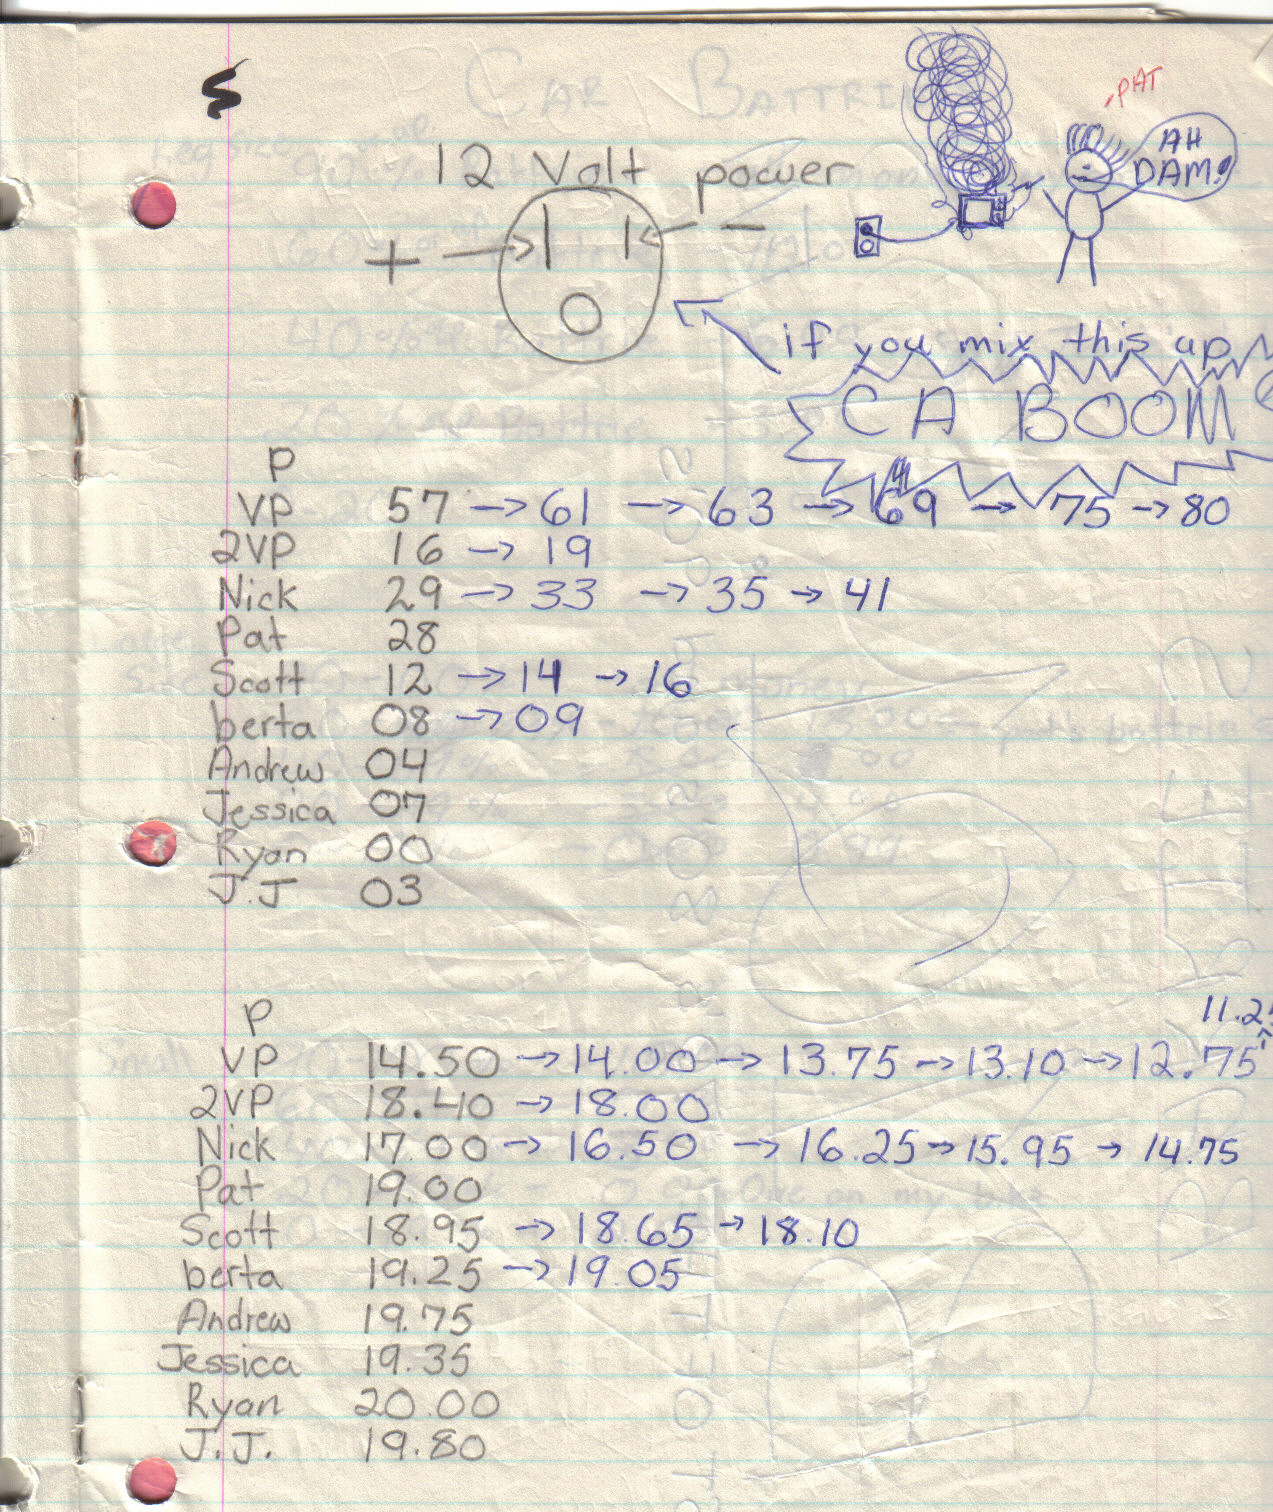 CAR BATTRI
PAT
AH
DAM!
12 Volt power
+ → ← -
if you mix this up
CA BOOM
P
VP 57 → 61 → 63 → 69 → 75 → 80
2VP 16 → 19
Nick 29 → 33 → 35 → 41
Pat 28
Scott 12 → 14 → 16
berta 08 → 09
Andrew 04
Jessica 07
Ryan 00
J.J 03
P
11.25
VP 14.50 → 14.00 → 13.75 → 13.10 → 12.75 →
2VP 18.40 → 18.00
Nick 17.00 → 16.50 → 16.25 → 15.95 → 14.75
Pat 19.00
Scott 18.95 → 18.65 → 18.10
berta 19.25 → 19.05
Andrew 19.75
Jessica 19.35
Ryan 20.00
J.J. 19.80